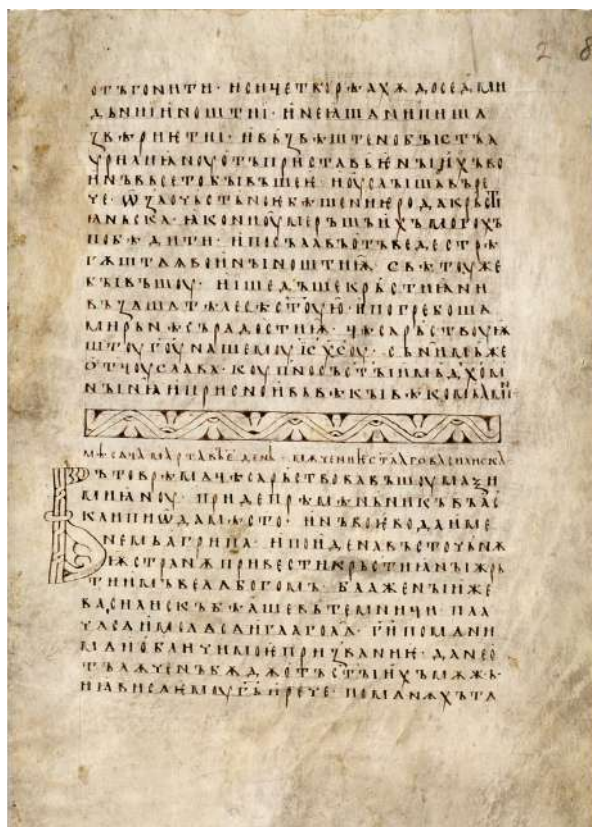 отъгонити · и сиче творѣахѫ до седми
дьниі и ноштиі · и не ꙗшѧ ни пишѧ
ꙁвѣриѥ ті · и вьꙁвѣштено бꙑстъ а
ѵрилиꙗноу отъ приставьѥнꙑихъ во
инъ вьсе то бꙑвъшеѥ · и оуслꙑшавъ ре
че · ѡ ꙁлочьстьноѥ бѣшениѥ рода крьсті
ꙗньска · ꙗко ни оумеръшиихъ могохъ
побѣдити · и посълавъ отъведе стрѣ
гѫштѧѩ воинꙑ ноштиѭ · свѣтоу же
бꙑвъшоу · и шедъше крьстиꙗни
вьꙁѧшѧ тѣлесе с҃тоую · и погребошѧ
мирьнѣ съ радостиѭ · цѣсарьствоуѭ
штоу г҃оу нашемоу і҃соу х҃соу · съ нимьже
о҃тцоу слава · коупно съ с҃тꙑимъ д҃хом
нꙑнꙗ и присно и вь вѣкꙑ вѣкомъ амин
мѣсѧца марта вь в҃ день · мѫчениѥ стааго василиска
въ то врѣмѧ цѣсарьствовавъшоу маѯи
миꙗноу · приде прѣмѣньникъ въ ас
клипиѡда мѣсто · инъ воѥвода име
немь агрипа · и поиде на въсточьнѫ
ѭ странѫ привести крьстиꙗнꙑ жрь
тъ имъ велѧ богомъ · блаженꙑи же
василискъ бѣаше вь темници · пла
чѧ сѧ и молѧ сѧ и глаголѧ · г҃и помѧни
мѧ и обличи моѥ приꙁваниѥ · да не о
тълѫченъ бѫдѫ отъ с҃тꙑихъ мѫжь ·
и ꙗви сѧ ѥмоу г҃ь и рече · помѧнѫхъ тѧ